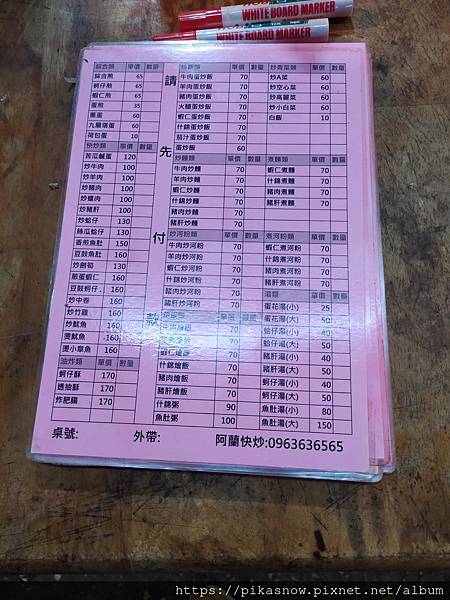 WHITE BOARD MARKER
WHITE BOARD MARKER
請先付款
綜合類 單價 數量
綜合煎 65
蚵仔煎 65
蝦仁煎 65
蛋煎 35
蔥蛋 60
九層塔蛋 60
荷包蛋 10
快炒類 單價 數量
苦瓜鹹蛋 120
炒牛肉 100
炒羊肉 100
炒豬肉 100
炒鱔肉 100
炒豬肝 100
炒蛤仔 100
絲瓜蛤仔 130
香煎魚肚 110
豆豉魚肚 150
炒劍筍 130
蔥蛋蝦仁 160
豆豉蚵仔 160
炒中卷 160
炒竹雞 160
炒魷魚 160
燙魷魚 160
燙小章魚 160
油炸類 單價 數量
蚵仔酥 170
透抽酥 170
炸肥腸 170
炒飯類 單價 數量
牛肉蛋炒飯 70
羊肉蛋炒飯 70
豬肉蛋炒飯 70
火腿蛋炒飯 70
蝦仁蛋炒飯 70
什錦蛋炒飯 70
茄汁蛋炒飯 70
蛋炒飯 60
炒麵類 單價 數量
牛肉炒麵 70
羊肉炒麵 70
蝦仁炒麵 70
什錦炒麵 70
豬肉炒麵 70
豬肝炒麵 70
炒河粉類 單價 數量
牛肉炒河粉 70
羊肉炒河粉 70
蝦仁炒河粉 70
什錦炒河粉 70
豬肉炒河粉 70
豬肝炒河粉 70
單價 數量
牛肉燴飯 70
羊肉燴飯 70
蝦仁燴飯 70
什錦燴飯 70
豬肉燴飯 70
豬肝燴飯 70
什錦粥 90
魚肚粥 100
炒青菜類 單價 數量
炒A菜 60
炒空心菜 60
炒高麗菜 60
炒小白菜 60
白飯 10
煮麵類 單價 數量
蝦仁煮麵 70
什錦煮麵 70
豬肉煮麵 70
豬肝煮麵 70
煮河粉類 單價 數量
蝦仁煮河粉 70
什錦煮河粉 70
豬肉煮河粉 70
豬肝煮河粉 70
湯類 單價 數量
蛋花湯(小) 25
蛋花湯(大) 50
蛤仔湯(小) 40
蛤仔湯(大) 50
豬肝湯(小) 40
豬肝湯(大) 50
蚵仔湯(小) 40
蚵仔湯(大) 50
魚肚湯(小) 80
魚肚湯(大) 150
桌號: 外帶: 阿蘭快炒:0963636565
https://pikasnow.pixnet.net/album